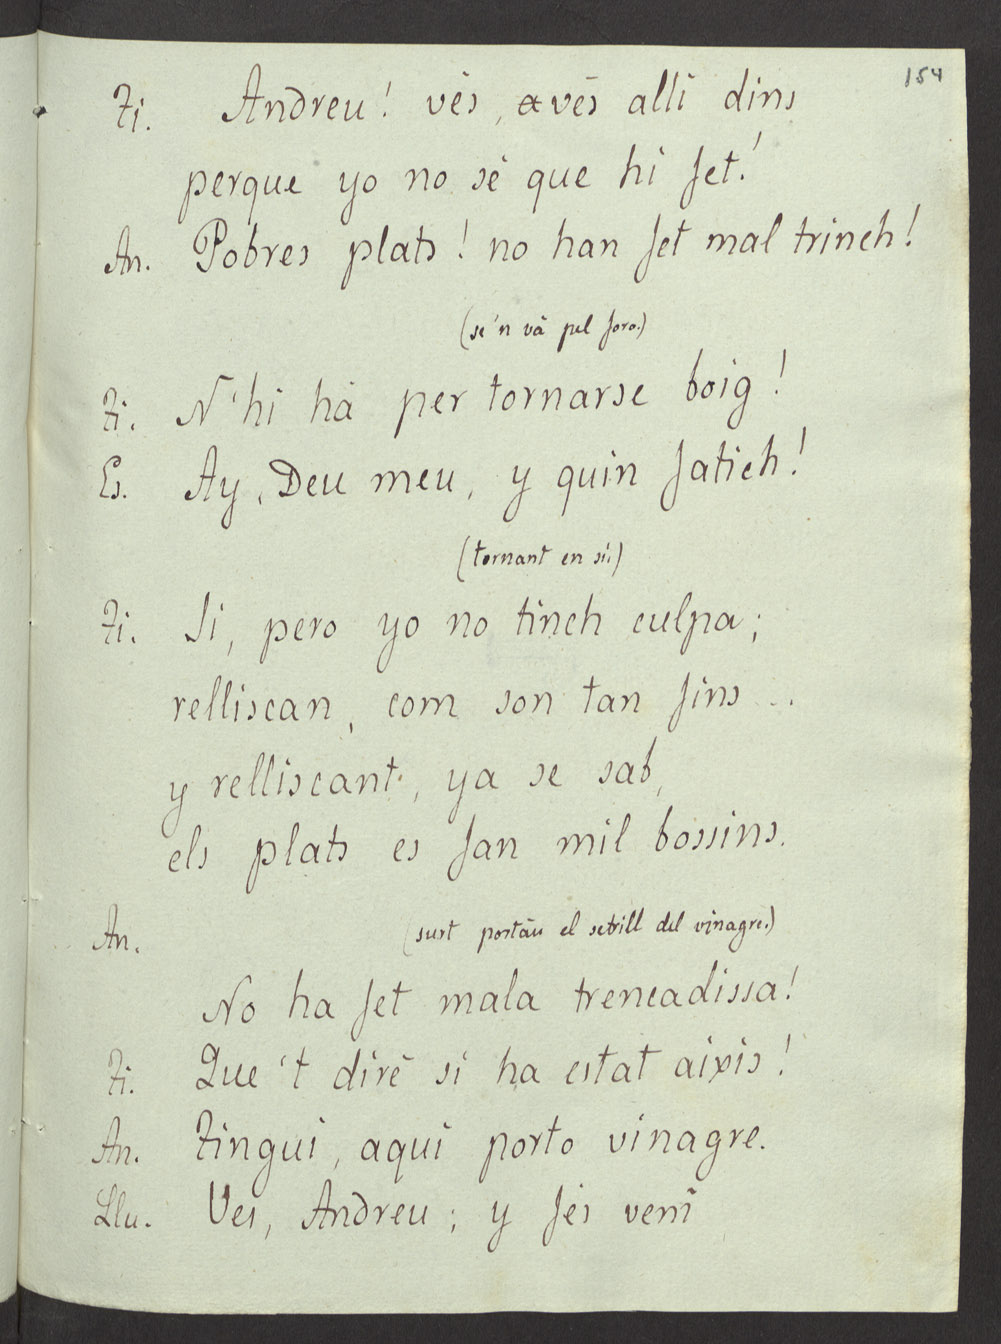 154
Ti. Andreu! vés, avés allí dins
perque yo no sé que hi fet!
An. Pobres plats! no han fet mal trinch!
(se'n và pel foro.)
Ti. N'hi hà per tornarse boig!
Es. Ay, Deu meu, y quin fatich!
(tornant en sí.)
Ti. Si, pero yo no tinch culpa;
relliscan, com son tan fins ...
y relliscant, ya se sab,
els plats es fan mil bossins.
An. (surt portàu el setrill del vinagre.)
No ha fet mala trencadissa!
Ti. Que't diré si ha estat aixis!
An. Tingui, aqui porto vinagre.
Llu. Ves, Andreu; y fés vení